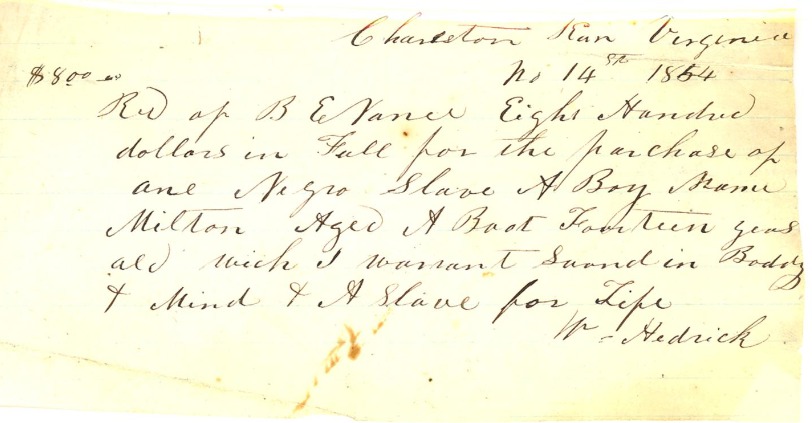 Charleston Kan Virginia
$800 00 No 14th 1854
Recd of B E Vance Eight Hundred
dollars in Full for the purchase of
one Negro Slave A Boy Name
Milton Aged A Boot Fourteen years
old wich I warrant Sound in Boddy
& Mind & A Slave for Life
Wm Hedrick